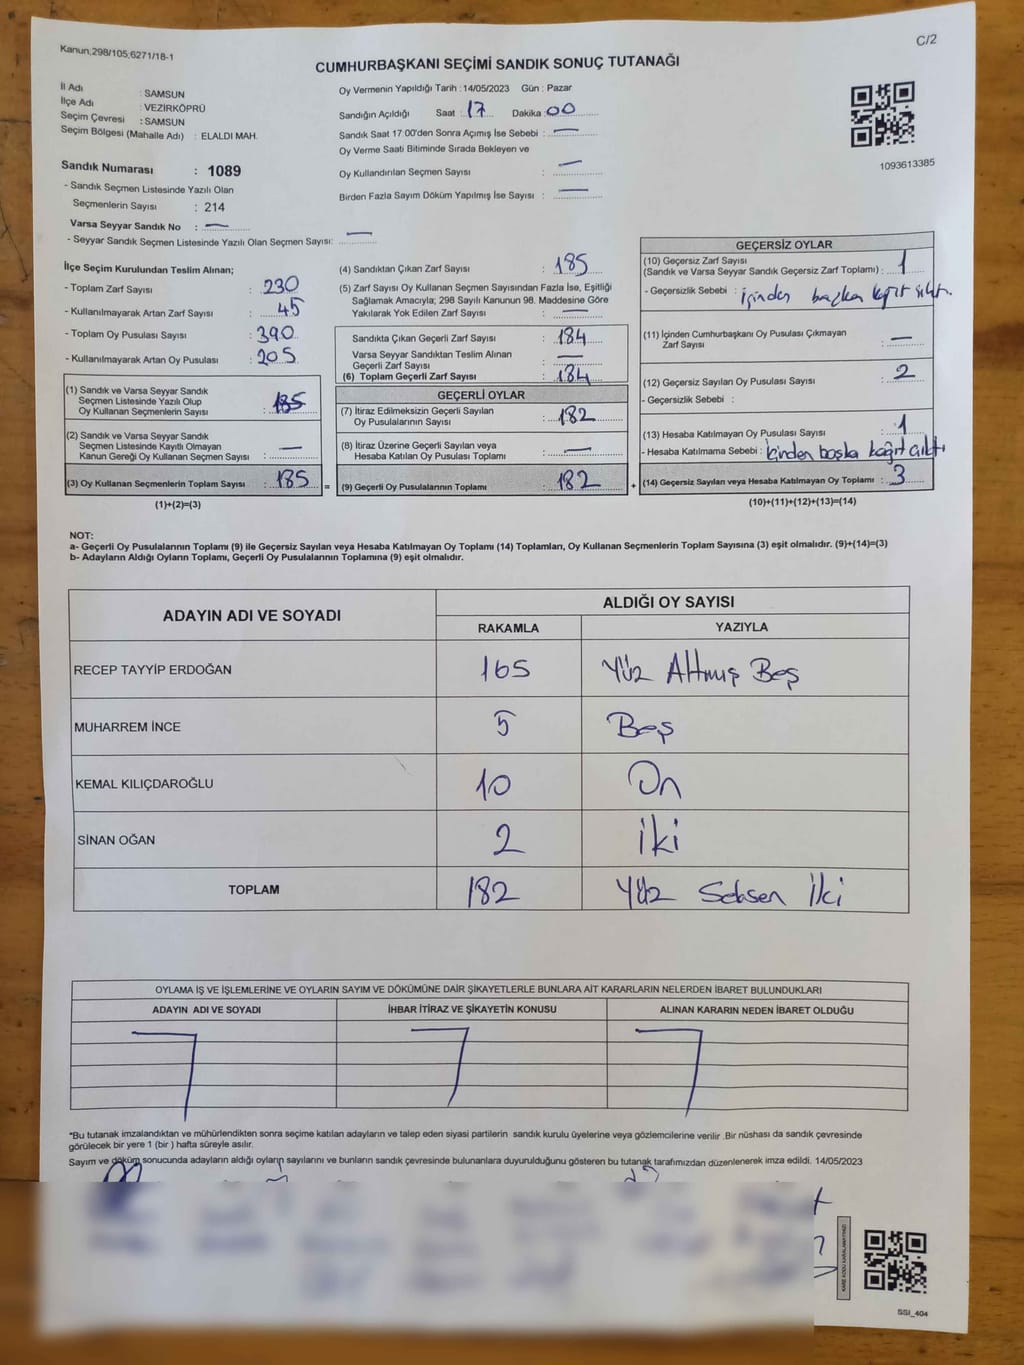 Kanun,298/105,6271/18-1
C/2
CUMHURBAŞKANI SEÇİMİ SANDIK SONUÇ TUTANAĞI
İl Adı : SAMSUN
İlçe Adı : VEZİRKÖPRÜ
Seçim Çevresi : SAMSUN
Seçim Bölgesi (Mahalle Adı) : ELALDI MAH.
Sandık Numarası : 1089
- Sandık Seçmen Listesinde Yazılı Olan
Seçmenlerin Sayısı : 214
Varsa Seyyar Sandık No : —
- Seyyar Sandık Seçmen Listesinde Yazılı Olan Seçmen Sayısı: —
Oy Vermenin Yapıldığı Tarih : 14/05/2023 Gün : Pazar
Sandığın Açıldığı Saat : 17 Dakika : 00
Sandık Saat 17:00'den Sonra Açımış İse Sebebi : —
Oy Verme Saati Bitiminde Sırada Bekleyen ve
Oy Kullandırılan Seçmen Sayısı : —
Birden Fazla Sayım Döküm Yapılmış İse Sayısı : —
1093613385
İlçe Seçim Kurulundan Teslim Alınan;
- Toplam Zarf Sayısı : 230
- Kullanılmayarak Artan Zarf Sayısı : 45
- Toplam Oy Pusulası Sayısı : 390
- Kullanılmayarak Artan Oy Pusulası : 205
(1) Sandık ve Varsa Seyyar Sandık
Seçmen Listesinde Yazılı Olup
Oy Kullanan Seçmenlerin Sayısı : 185
(2) Sandık ve Varsa Seyyar Sandık
Seçmen Listesinde Kayıtlı Olmayan
Kanun Gereği Oy Kullanan Seçmen Sayısı : —
(3) Oy Kullanan Seçmenlerin Toplam Sayısı : 185 =
(1)+(2)=(3)
(4) Sandıktan Çıkan Zarf Sayısı : 185
(5) Zarf Sayısı Oy Kullanan Seçmen Sayısından Fazla İse, Eşitliği
Sağlamak Amacıyla; 298 Sayılı Kanunun 98. Maddesine Göre
Yakılarak Yok Edilen Zarf Sayısı : —
Sandıkta Çıkan Geçerli Zarf Sayısı : 184
Varsa Seyyar Sandıktan Teslim Alınan
Geçerli Zarf Sayısı : —
(6) Toplam Geçerli Zarf Sayısı : 184
GEÇERLİ OYLAR
(7) İtiraz Edilmeksizin Geçerli Sayılan
Oy Pusulalarının Sayısı : 182
(8) İtiraz Üzerine Geçerli Sayılan veya
Hesaba Katılan Oy Pusulası Toplamı : —
(9) Geçerli Oy Pusulalarının Toplamı : 182 +
GEÇERSİZ OYLAR
(10) Geçersiz Zarf Sayısı
(Sandık ve Varsa Seyyar Sandık Geçersiz Zarf Toplamı) : 1
- Geçersizlik Sebebi : içinden başka
(11) İçinden Cumhurbaşkanı Oy Pusulası Çıkmayan
Zarf Sayısı : —
(12) Geçersiz Sayılan Oy Pusulası Sayısı : 2
- Geçersizlik Sebebi :
(13) Hesaba Katılmayan Oy Pusulası Sayısı : 1
- Hesaba Katılmama Sebebi : içinden başka kağıt çıktı
(14) Geçersiz Sayılan veya Hesaba Katılmayan Oy Toplamı : 3
(10)+(11)+(12)+(13)=(14)
NOT:
a- Geçerli Oy Pusulalarının Toplamı (9) ile Geçersiz Sayılan veya Hesaba Katılmayan Oy Toplamı (14) Toplamları, Oy Kullanan Seçmenlerin Toplam Sayısına (3) eşit olmalıdır. (9)+(14)=(3)
b- Adayların Aldığı Oyların Toplamı, Geçerli Oy Pusulalarının Toplamına (9) eşit olmalıdır.
ADAYIN ADI VE SOYADI
ALDIĞI OY SAYISI
RAKAMLA YAZIYLA
RECEP TAYYİP ERDOĞAN 165 Yüz Altmış Beş
MUHARREM İNCE 5 Beş
KEMAL KILIÇDAROĞLU 10 On
SİNAN OĞAN 2 İki
TOPLAM 182 Yüz Seksen İki
OYLAMA İŞ VE İŞLEMLERİNE VE OYLARIN SAYIM VE DÖKÜMÜNE DAİR ŞİKAYETLERLE BUNLARA AİT KARARLARIN NELERDEN İBARET BULUNDUKLARI
ADAYIN ADI VE SOYADI İHBAR İTİRAZ VE ŞİKAYETİN KONUSU ALINAN KARARIN NEDEN İBARET OLDUĞU
*Bu tutanak imzalandıktan ve mühürlendikten sonra seçime katılan adayların ve talep eden siyasi partilerin sandık kurulu üyelerine veya gözlemcilerine verilir .Bir nüshası da sandık çevresinde
görülecek bir yere 1 (bir ) hafta süreyle asılır.
Sayım ve döküm sonucunda adayların aldığı oyların sayılarını ve bunların sandık çevresinde bulunanlara duyurulduğunu gösteren bu tutanak tarafımızdan düzenlenerek imza edildi. 14/05/2023
KARE KODU KARALAMAYINIZ!
SSI_404